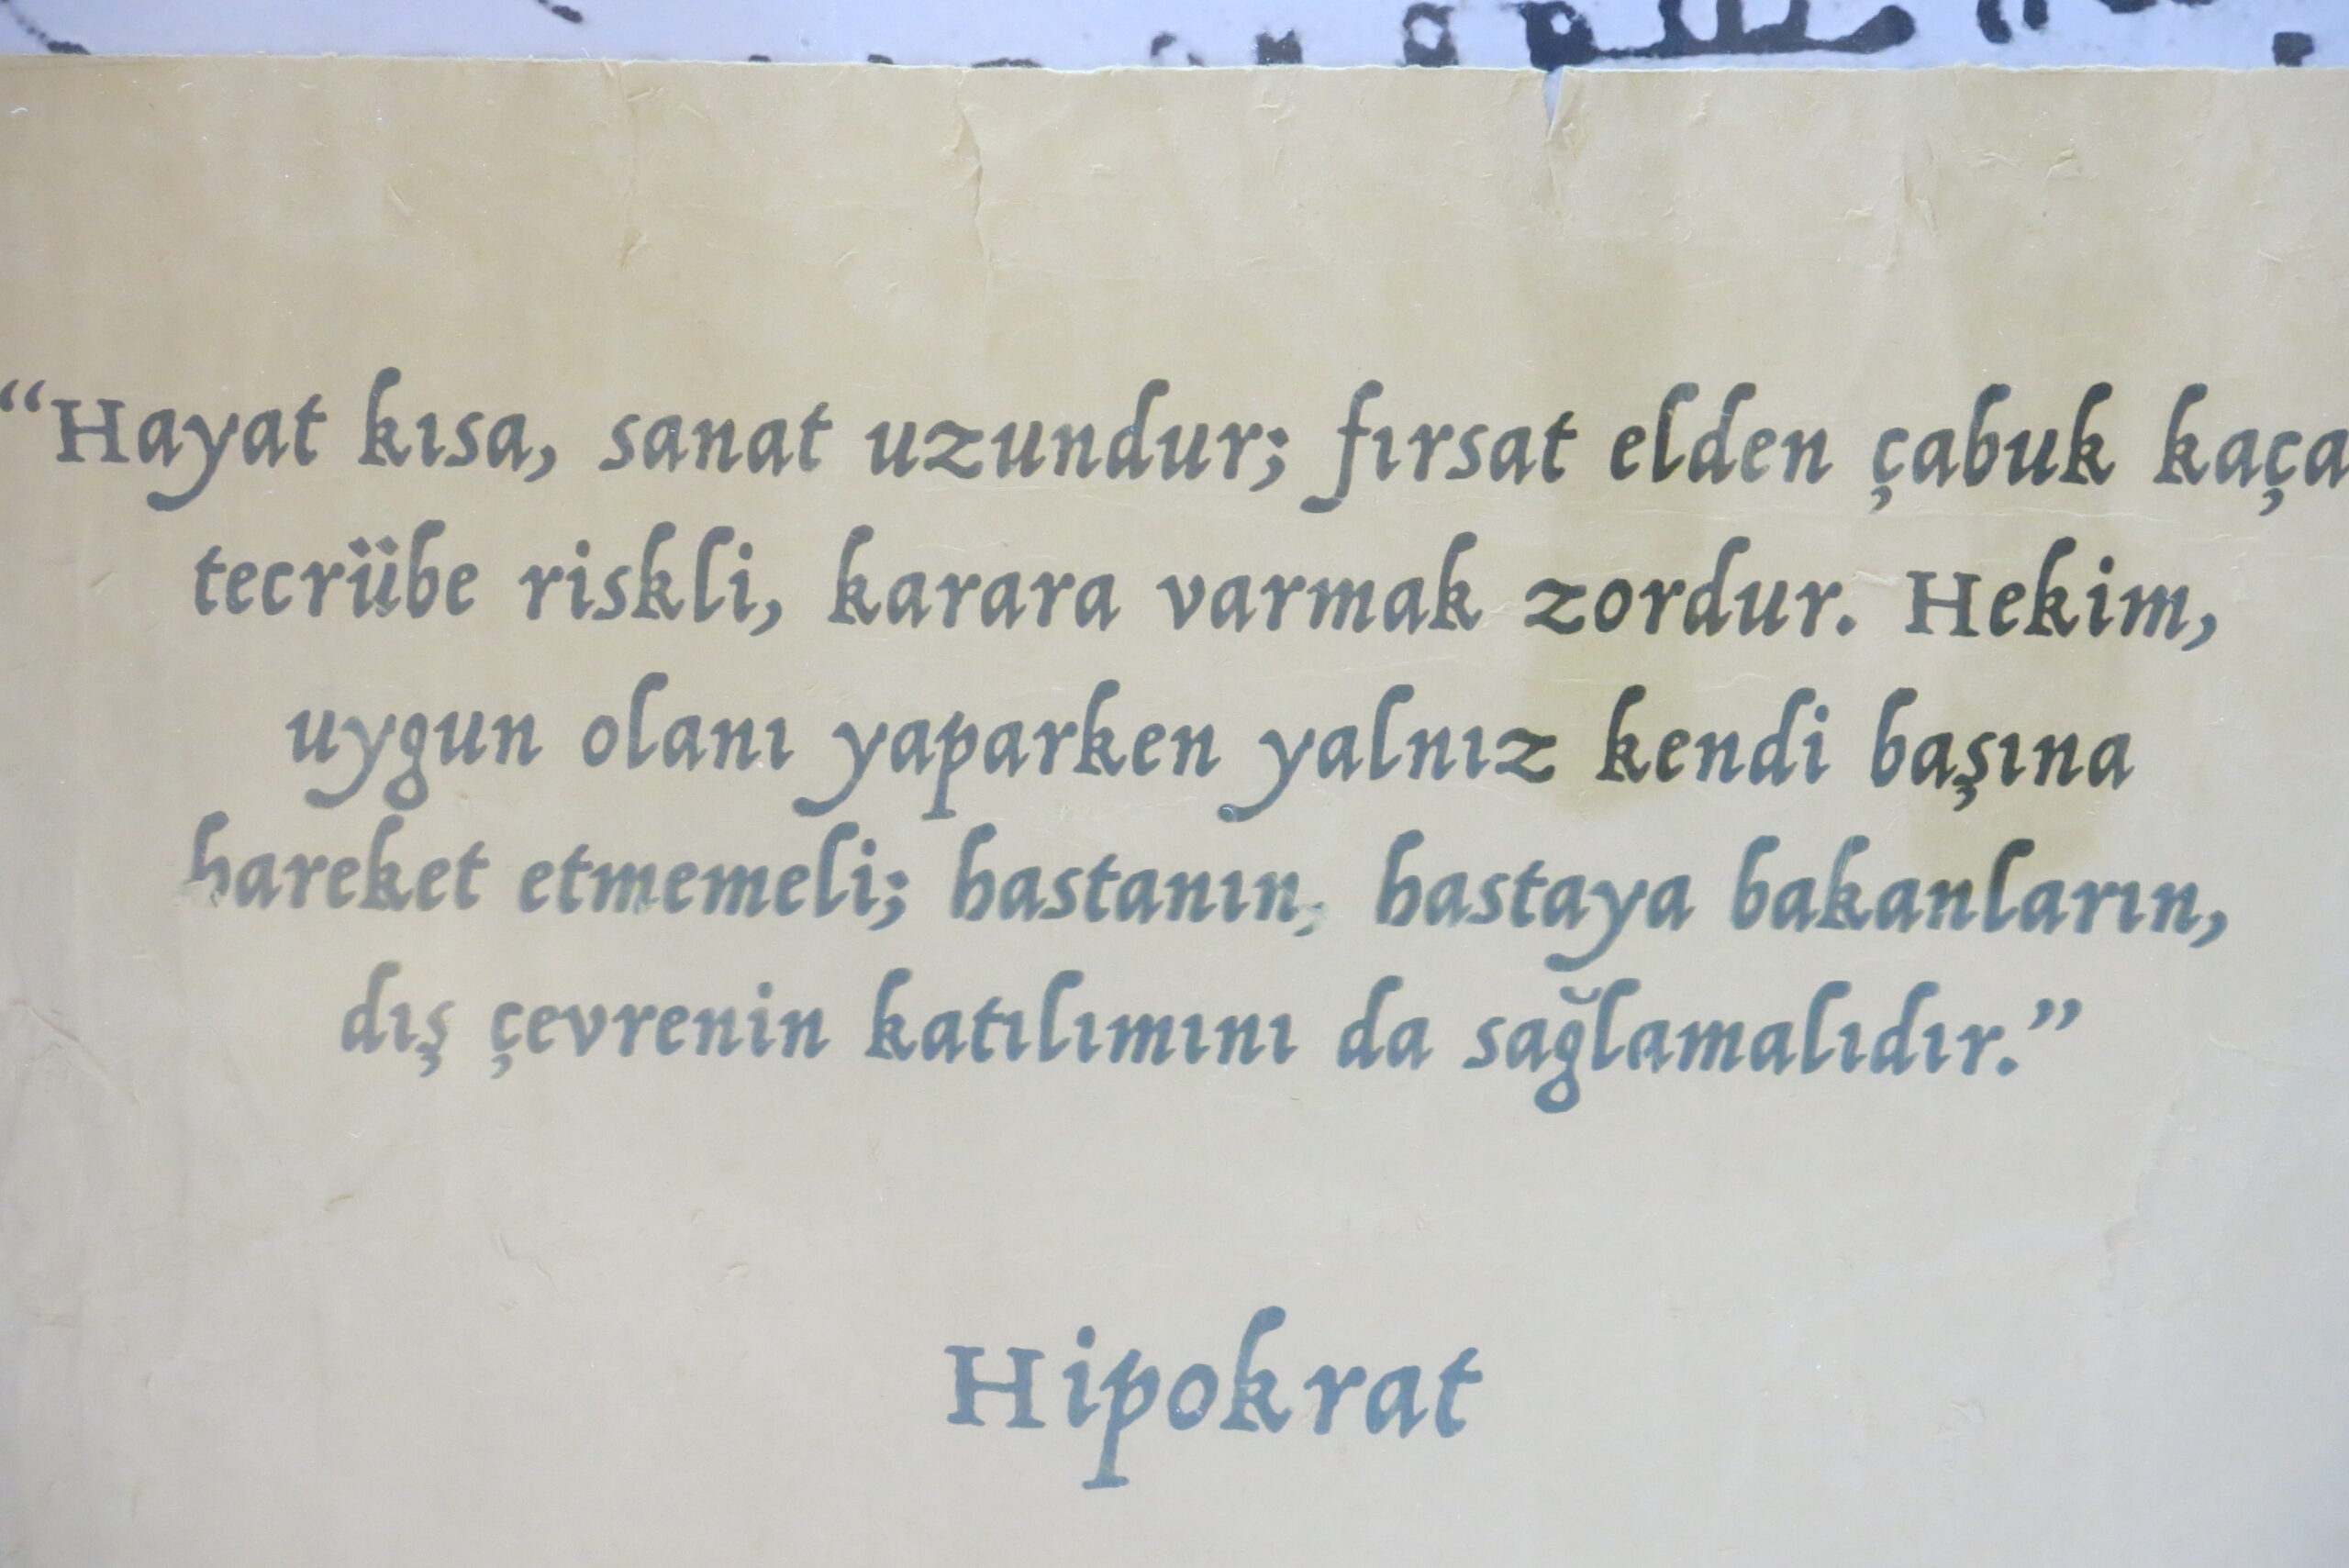 “Hayat kısa, sanat uzundur; fırsat elden çabuk kaça
tecrübe riskli, karara varmak zordur. Hekim,
uygun olanı yaparken yalnız kendi başına
hareket etmemeli; hastanın, hastaya bakanların,
dış çevrenin katılımını da sağlamalıdır.”
Hipokrat